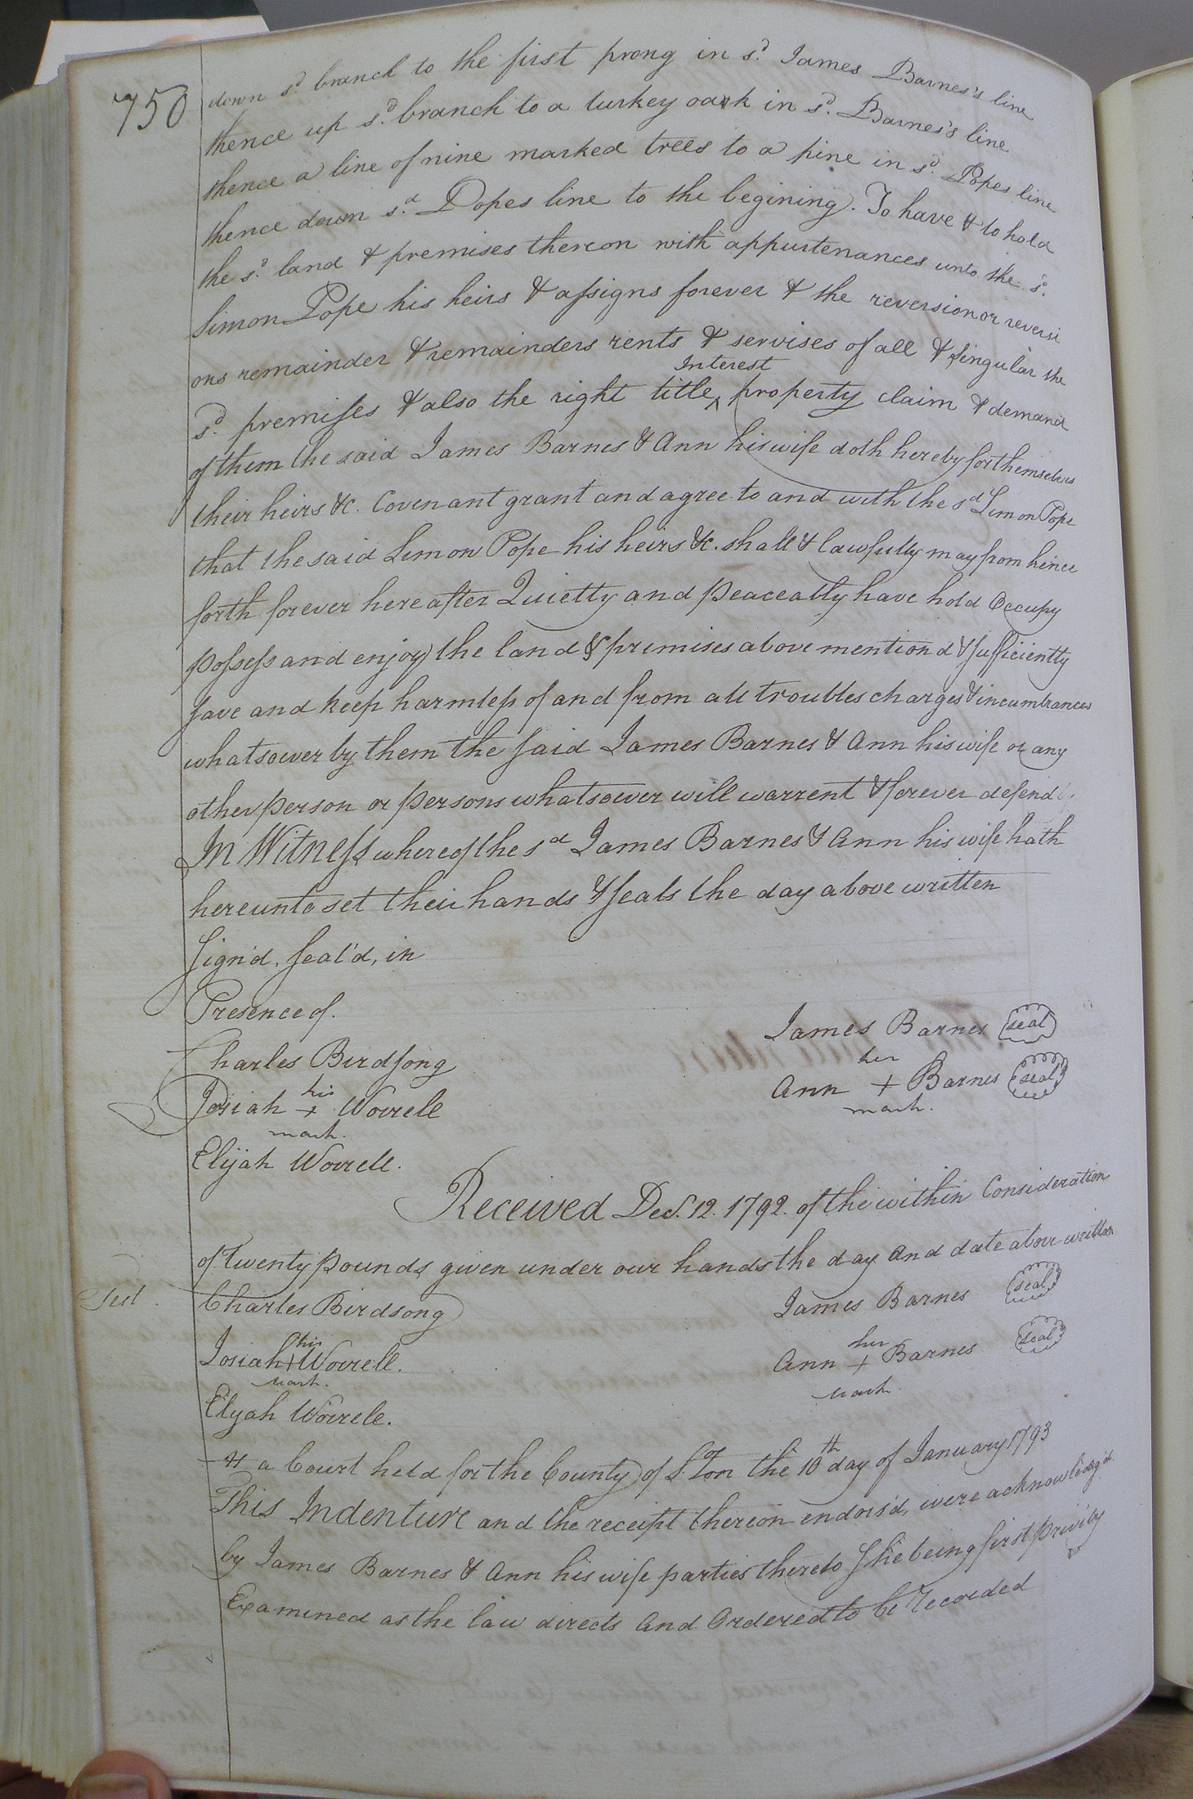 750
down sd. branch to the first prong in sd. James Barnes's line
thence up sd. branch to a turkey oark in sd. Barnes's line
thence a line of nine marked trees to a pine in sd. Popes line
thence down sd. Popes line to the begining. To have & to hold
the sd. land & premises thereon with appurtenances unto the sd.
Simon Pope his heirs & assigns forever & the reversion or reversi
ons remainder & remainders rents & servises of all & singular the
Interest
sd. premisses & also the right title ^ property claim & demand
of them the said James Barnes & Ann his wife doth hereby for themselves
their heirs &c. Covenant grant and agree to and with the sd Simon Pope
that the said Simon Pope his heirs &c. shall & lawfully may from hence
forth forever hereafter Quietly and peaceably have hold Occupy
possess and enjoy the land & premises above mentiond & sufficiently
save and keep harmless of and from all troubles charges & incumbrances
whatsoever by them the said James Barnes & Ann his wife or any
other person or persons whatsoever will warrent & forever defend
In Witness whereof the sd James Barnes & Ann his wife hath
hereunto set their hands & seals the day above written
Sign'd, Seal'd, in
Presence of.
James Barnes seal
Charles Birdsong
her
Ann + Barnes seal
mark.
his
Josiah + Worrell
mark.
Elijah Worrell.
Received Dec. 12. 1792. of the within Consideration
of Twenty pounds given under our hands the day and date above written
Test.
Charles Birdsong
James Barnes seal
his
Josiah + Worrell.
mark.
her
Ann + Barnes seal
mark.
Elijah Worrell.
At a Court held for the County of S.ton the 10th day of January 1793
This Indenture and the receipt thereon endors'd, were acknowledg'd
by James Barnes & Ann his wife parties thereto she being first privily
Examined as the law directs and Ordered to be Recorded